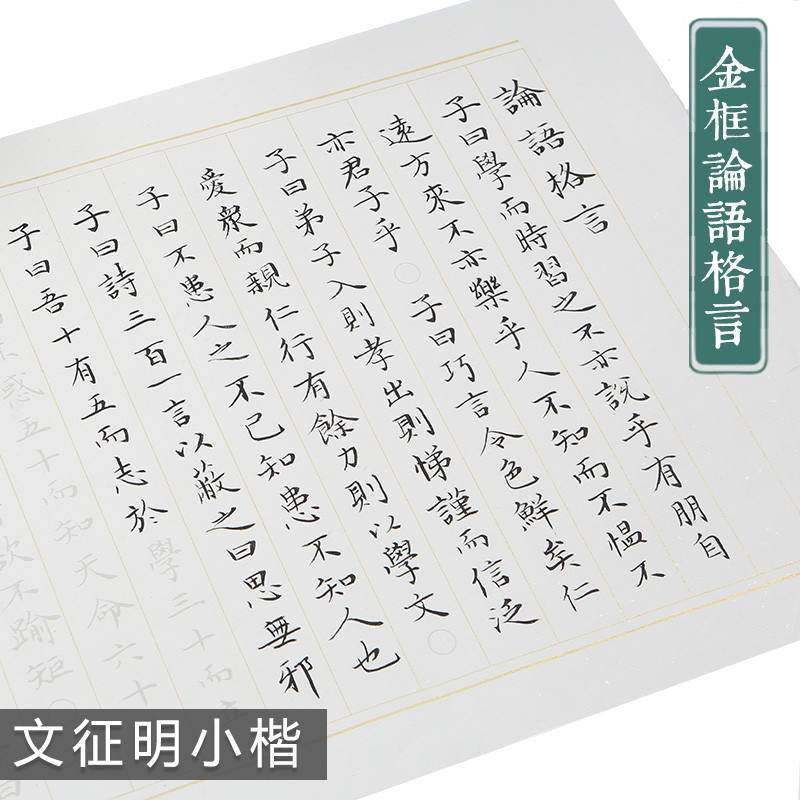 金框論語格言
論語格言
子曰學而時習之不亦說乎有朋自
遠方來不亦樂乎人不知而不慍不
亦君子乎○子曰巧言令色鮮矣仁
子曰弟子入則孝出則悌謹而信泛
愛衆而親仁行有餘力則以學文○
子曰不患人之不已知患不知人也
子曰詩三百一言以蔽之曰思無邪
子曰吾十有五而志於學三十而
惑五十而知天命六十
欲不踰矩○
文征明小楷